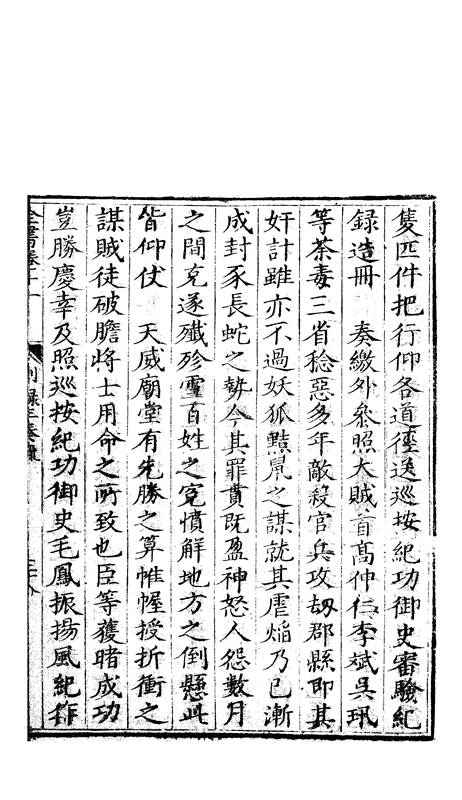 隻匹件把行仰各道徑送巡按紀功御史審驗紀
錄造冊 奏繳外參照大賊首高仲仁李斌吳玑
等荼毒三省稔惡多年敵殺官兵攻刼郡縣即其
奸計雖亦不過妖狐黠鼠之謀就其虐焰乃已漸
成封豕長蛇之勢今其罪貫既盈神怒人怨數月
之間克遂殲殄雪百姓之寃憤解地方之倒懸此
皆仰仗 天威廟堂有先勝之算帷幄授折衝之
謀賊徒破膽將士用命之所致也臣等獲睹成功
豈勝慶幸及照巡按紀功御史毛鳳振揚風紀作
全書卷十一
別錄三奏疏